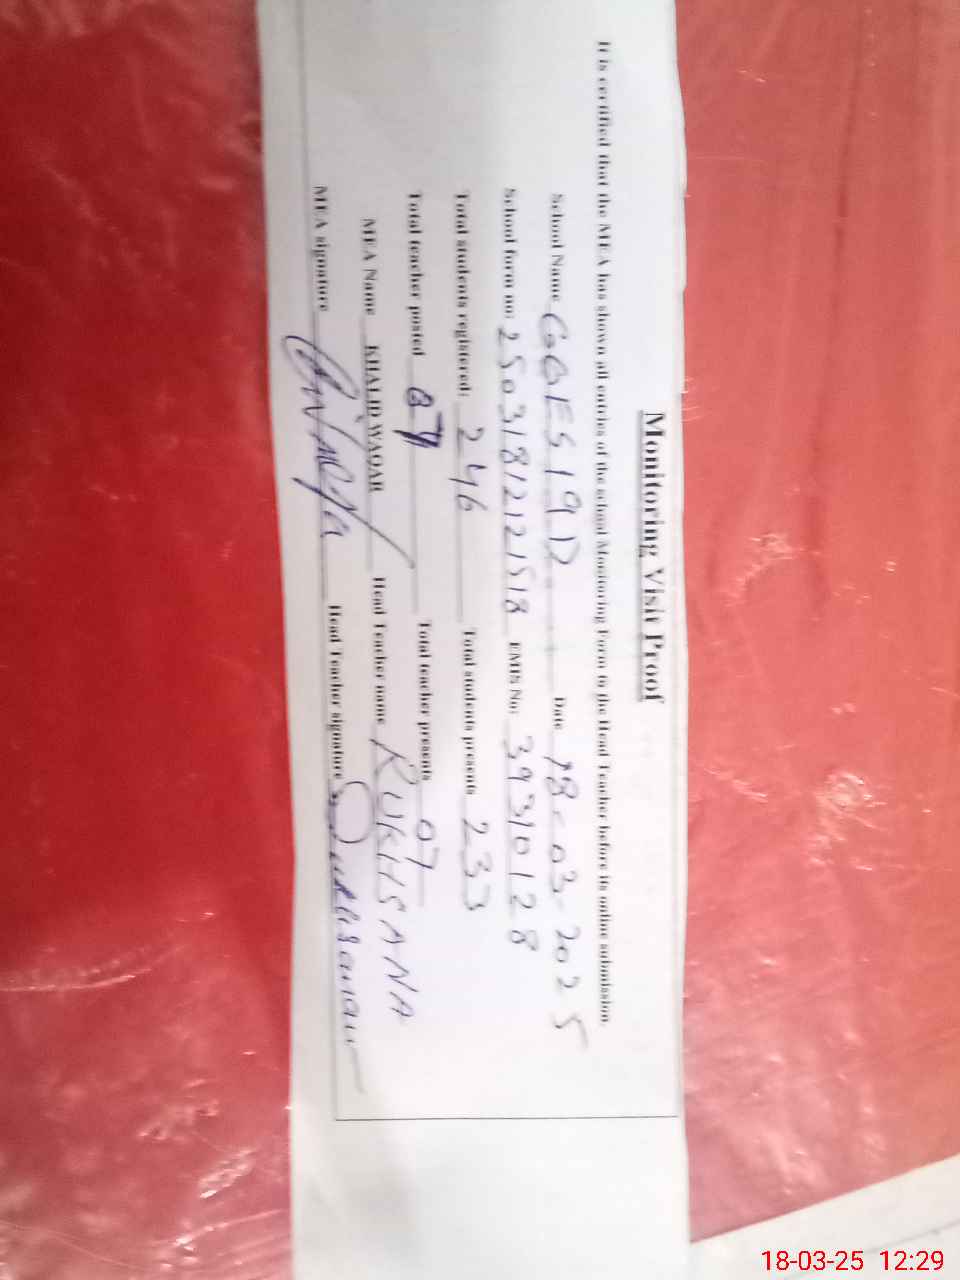 Monitoring Visit Proof
It is certified that the MEA has shown all entries of the school Monitoring Form to the Head Teacher before its online submission.
School Name GGES 19 D Date 18-03-2025
School form no: 25031812121518 EMIS No: 39310128
Total students registered: 246 Total students presents 233
Total teacher posted 07 Total teacher presents 07
MEA Name KHALID WAQAR Head Teacher name RUKHSANA
MEA signature Head Teacher signature
18-03-25 12:29